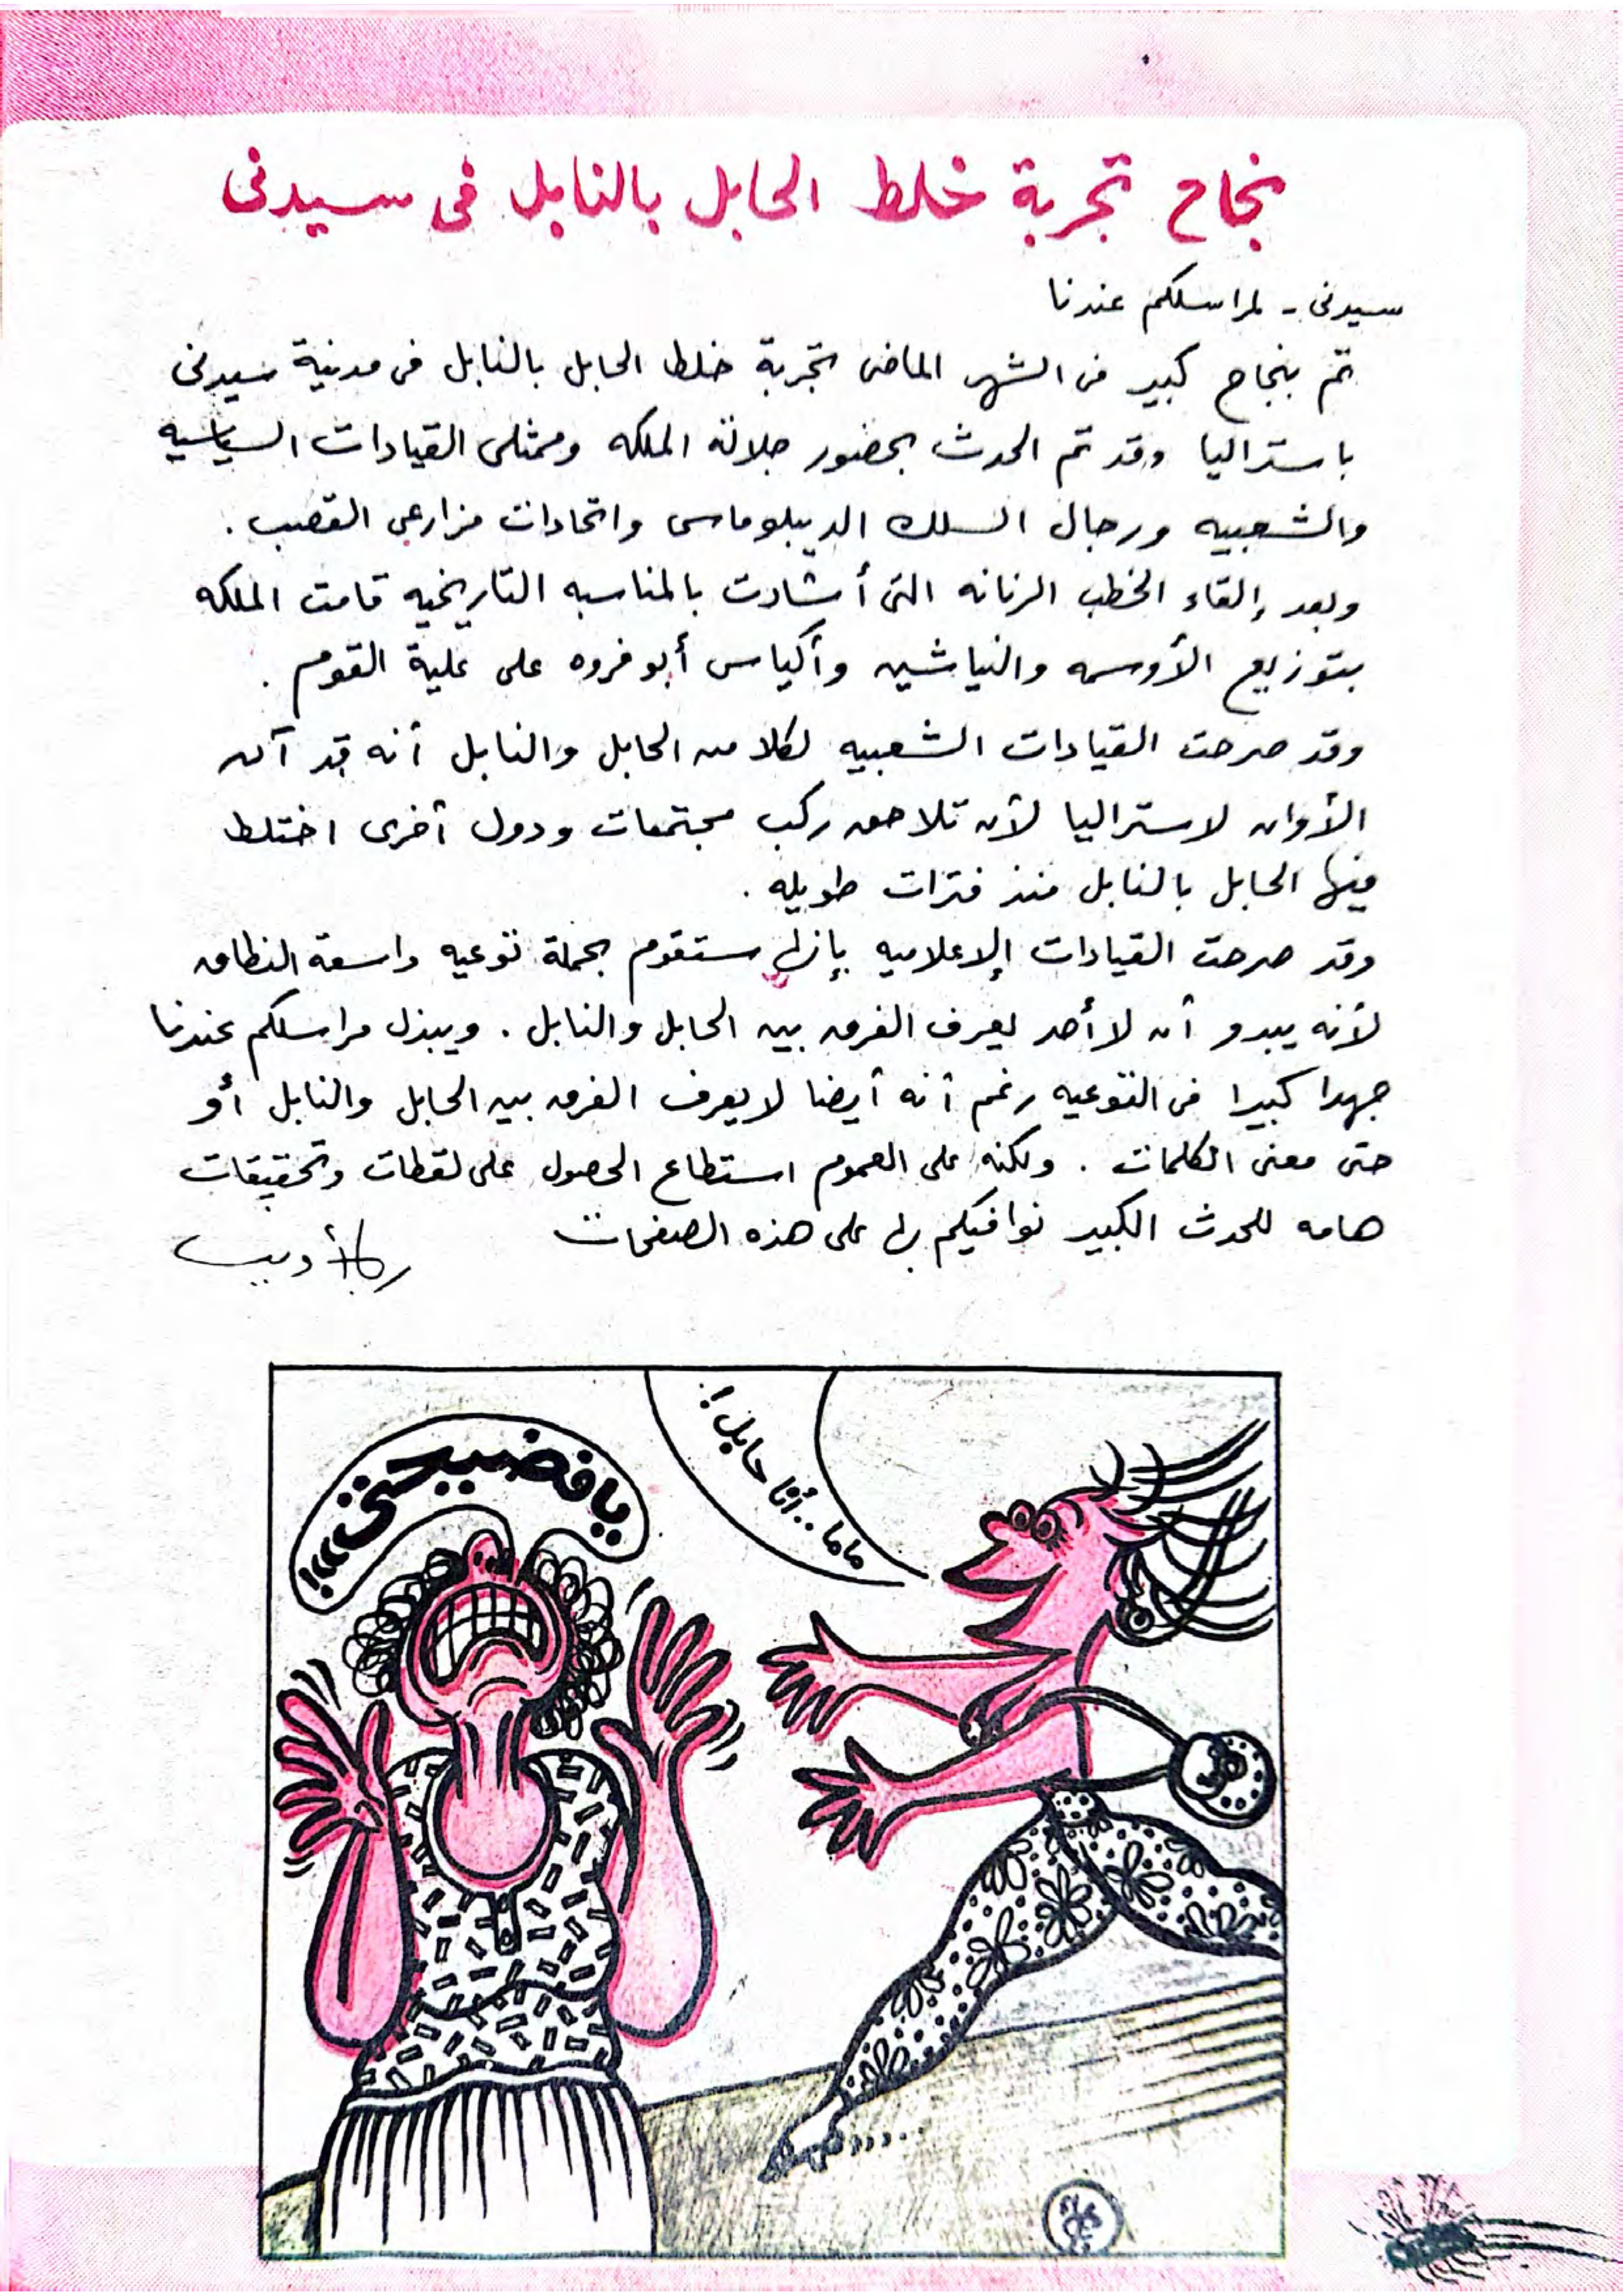 نجاح تجربة خلط الحابل بالنابل فى سيدنى
سيدنى - لمراسلكم عندنا
تم بنجاح كبير فى الشهر الماضى تجربة خلط الحابل بالنابل فى مدينة سيدنى
باستراليا وقد تم الحدث بحضور جلالة الملكه وممثلى القيادات السياسيه
والشعبيه ورجال السلك الديبلوماسى واتحادات مزارعى القصب .
وبعد إلقاء الخطب الرنانه التى أشادت بالمناسبه التاريخيه قامت الملكه
بتوزيع الأوسمه والنياشين وأكياس أبو فروه على علية القوم .
وقد صرحت القيادات الشعبيه لكلا من الحابل والنابل أنه قد آن
الأوان لاستراليا لأن تلاحق ركب مجتمعات ودول أخرى اختلط
فيها الحابل بالنابل منذ فترات طويله .
وقد صرحت القيادات الإعلاميه بإنها ستقوم بحملة توعيه واسعة النطاق
لأنه يبدو أن لا أحد يعرف الفرق بين الحابل والنابل . ويبذل مراسلكم عندنا
جهدا كبيرا فى التوعيه رغم أنه أيضا لا يعرف الفرق بين الحابل والنابل أو
حتى معنى الكلمات . ولكنه على العموم استطاع الحصول على لقطات وتحقيقات
هامه للحدث الكبير نوافيكم بها على هذه الصفحات
يا فضيحتىىىى!!
ماما .. أنا حابل !